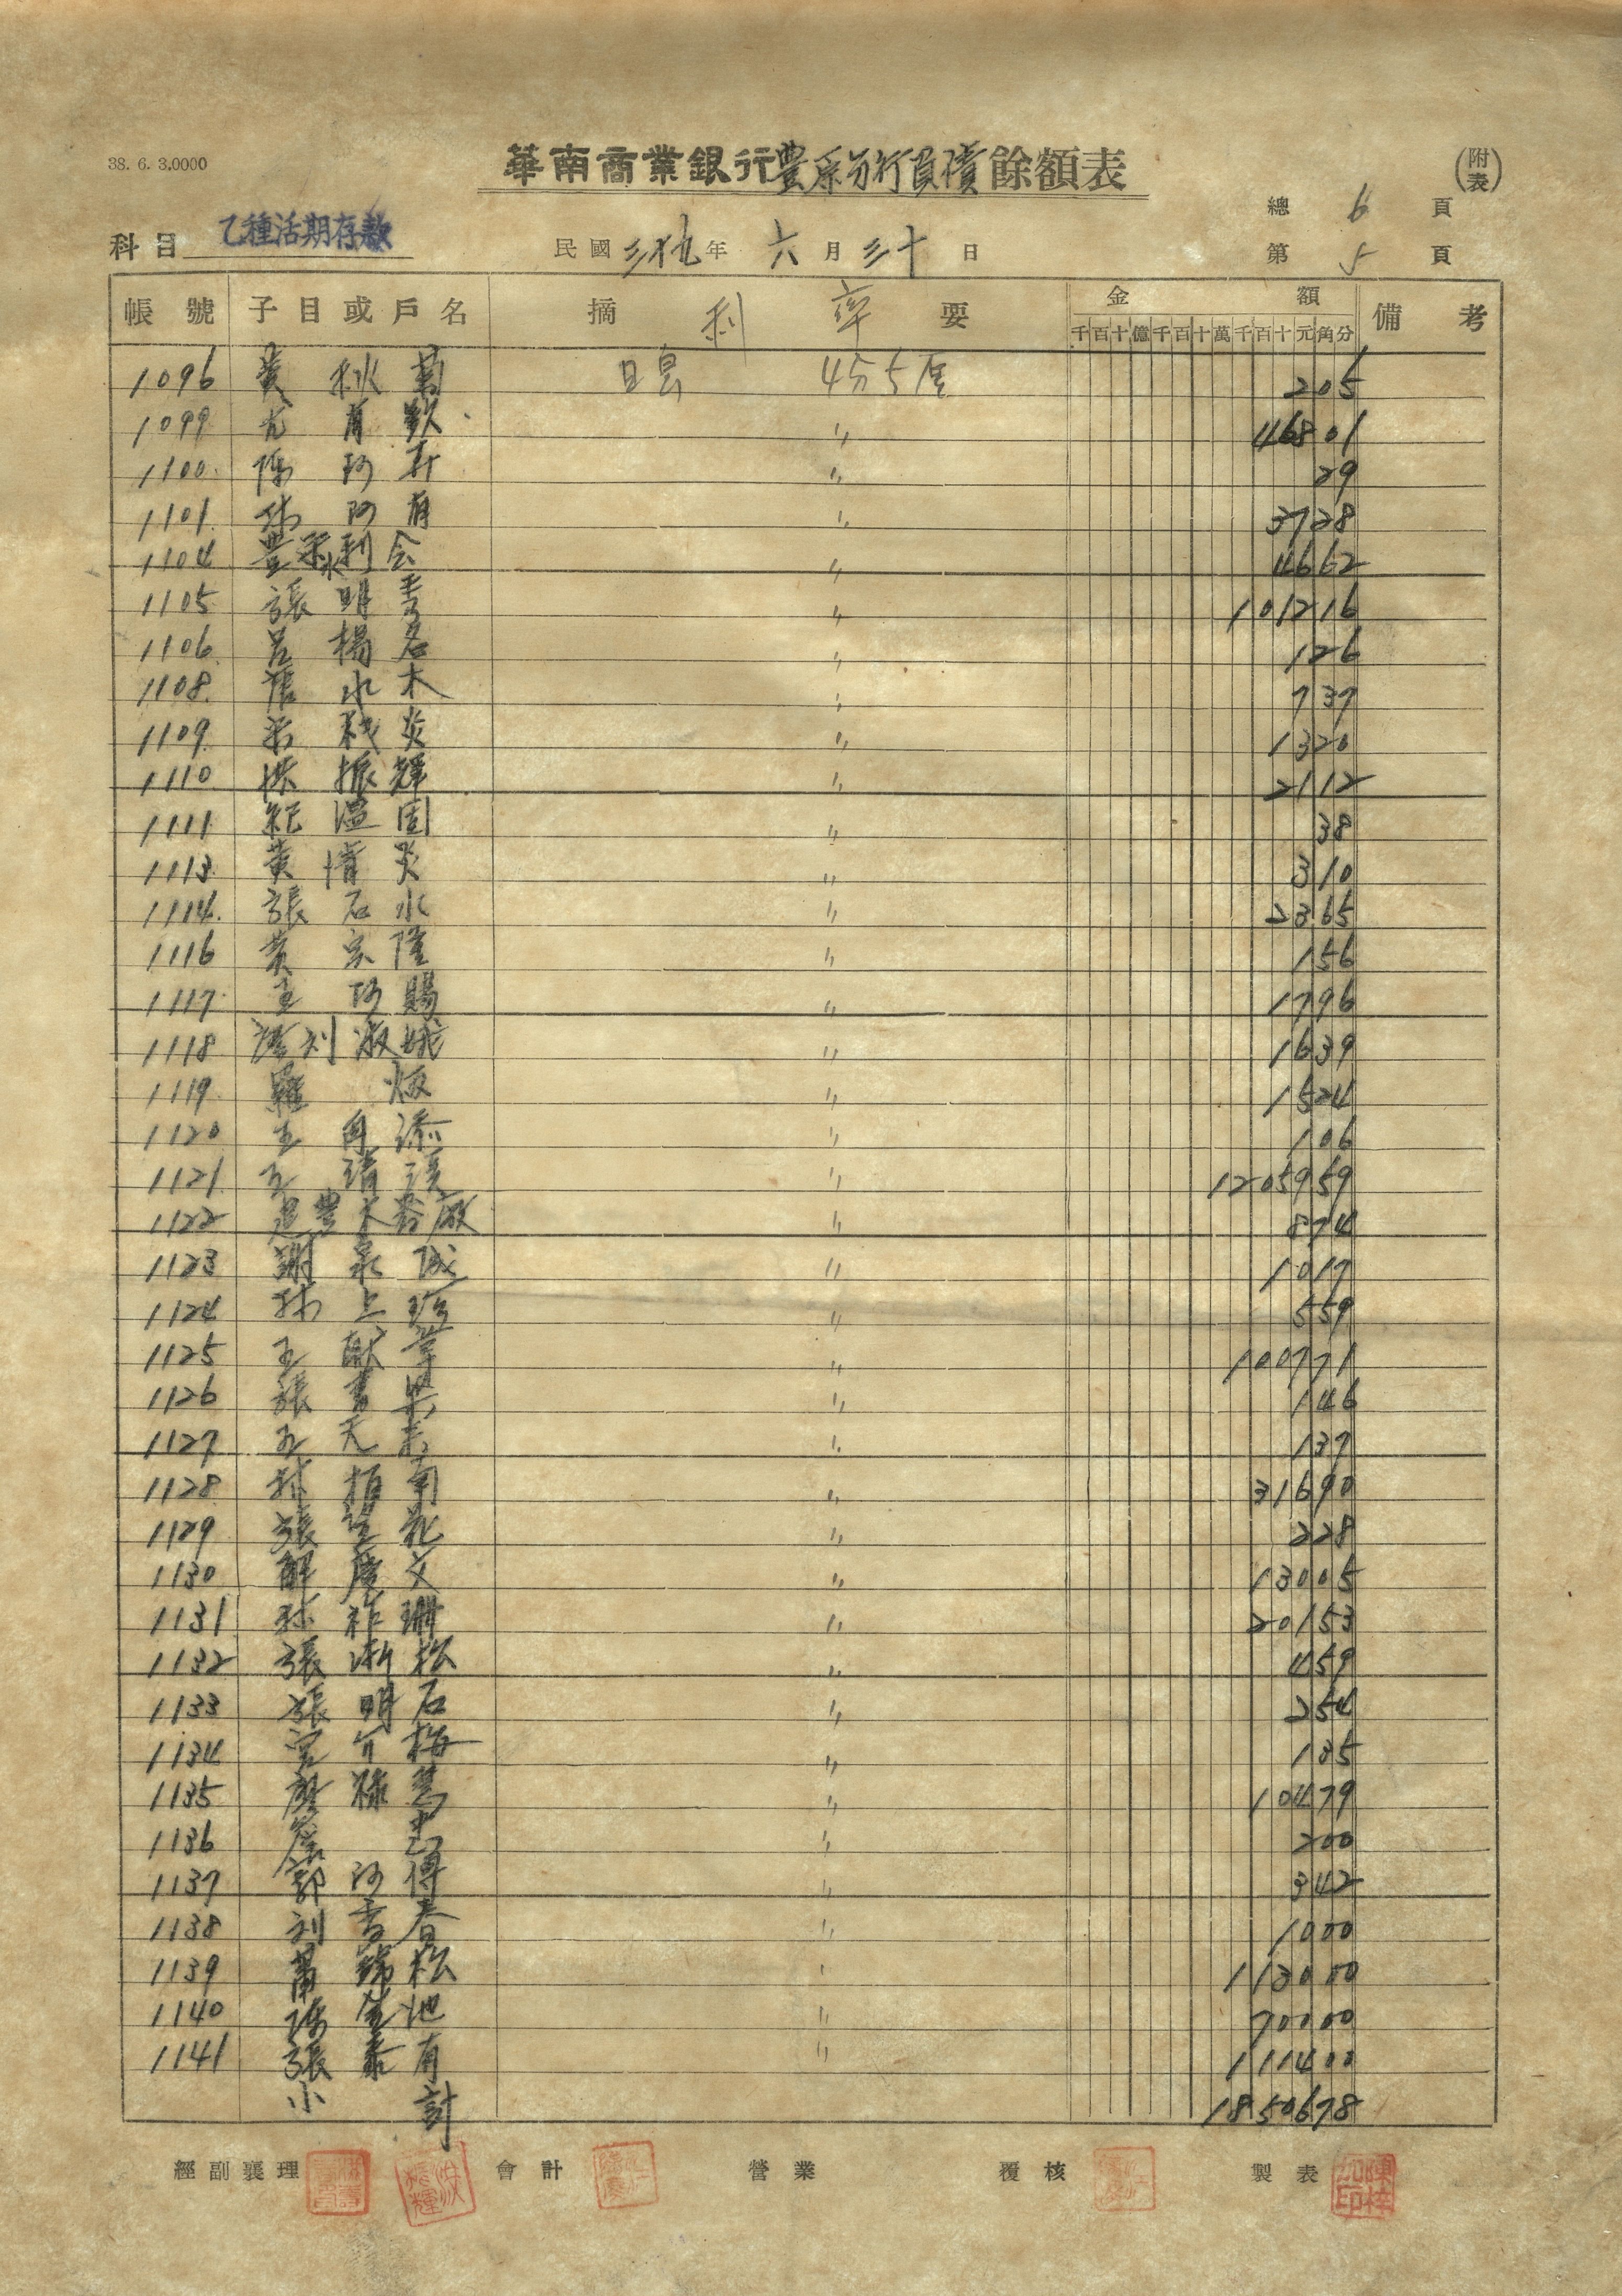 38. 6. 3.0000
華南商業銀行豐原分行負債餘額表
(附表)
總 6 頁
科目 乙種活期存款
民國 三拾九 年 六 月 三十 日
第 5 頁
帳號 子目或戶名 摘 利 率 要 金額 備考
千百十億千百十萬千百十元角分
1096 黃秋菊 日息 4分5厘 205
1099 〃 46801
1100 陳阿 〃 29
1101 林阿有 〃 3728
1104 豐原水利会 〃 4662
1105 張明 〃 101216
1106 呂楊名 〃 126
1108 張水木 〃 737
1109 炎 〃 1320
1110 洪振輝 〃 2112
1111 紀溫固 〃 38
1113 黃情炎 〃 310
1114 張石水 〃 2365
1116 黃宗隆 〃 156
1117 王阿賜 〃 1796
1118 刘淑娥 〃 1639
1119 羅 〃 1524
1120 王再添 〃 106
1121 王清 〃 1205959
1122 豐木 廠 〃 874
1123 謝泉 〃 1017
1124 林上 〃 559
1125 王献章 〃 100771
1126 張 〃 146
1127 王天 〃 137
1128 林栢南 〃 31690
1129 張 花 〃 228
1130 解慶文 〃 13005
1131 林祚珊 〃 20153
1132 張漸松 〃 459
1133 張明石 〃 254
1134 宮竹梅 〃 135
1135 廖祿 〃 10479
1136 詹 〃 200
1137 郭阿傳 〃 342
1138 刘香春 〃 1000
1139 蕭錦松 〃 113000
1140 陳金池 〃 70000
1141 張泰有 〃 111400
小計 1850678
經副襄理 會計 營業 覆核 製表 陳梓加印